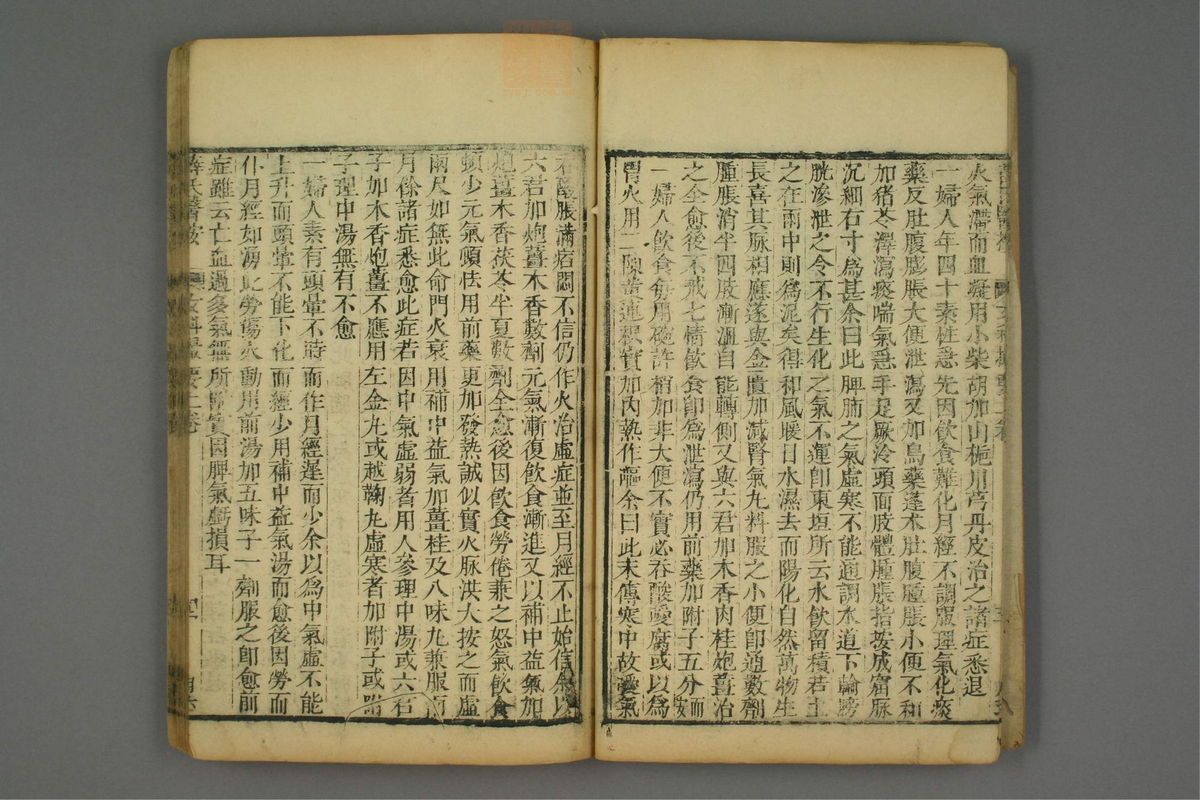 火氣滯而血凝用小柴胡加山梔川芎丹皮治之諸症悉退
一婦人年四十素性急先因飲食難化月經不調服理氣化痰
藥反肚腹膨脹大便泄瀉又加烏藥蓬朮肚腹腫脹小便不利
加猪苓澤瀉痰喘氣急手足厥冷頭面肢體腫脹指按成窟脉
沉細右寸爲甚余曰此脾肺之氣虛寒不能通調水道下輸膀
胱滲泄之令不行生化之氣不運卽東垣所云水飲留積若土
之在雨中則爲泥矣得和風暖日水濕去而陽化自然萬物生
長喜其脉相應遂與金匱加減腎氣丸料服之小便卽通數劑
腫脹消半四肢漸溫自能轉側又與六君加木香肉桂炮薑治
之全愈後不戒七情飲食卽爲泄瀉仍用前藥加附子五分而安
一婦人飲食每用碗許稍加非大便不實必吞酸噯腐或以爲
胃火用二陳黃連枳實加內熱作嘔余曰此末傳寒中故噯氣
吞酸脹滿痞悶不信仍作火治虛症並至月經不止始信余以
六君加炮薑木香數劑元氣漸復飲食漸進又以補中益氣加
炮薑木香茯苓半夏數劑全愈後因飲食勞倦兼之怒氣飲食
頓少元氣頓怯用前藥更加發熱誠似實火脉洪大按之而虛
兩尺如無此命門火衰用補中益氣加薑桂及八味丸兼服兩
月餘諸症悉愈此症若因中氣虛弱者用人參理中湯或六君
子加木香炮薑不應用左金丸或越鞠丸虛寒者加附子或附
子理中湯無有不愈
一婦人素有頭暈不時而作月經遲而少余以爲中氣虛不能
上升而頭暈不能下化而經少用補中益氣湯而愈後因勞而
仆月經如湧此勞傷火動用前湯加五味子一劑服之卽愈前
症雖云亡血過多氣無所歸實因脾氣虧損耳
薛氏醫按 女科撮要上卷